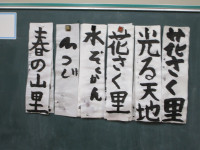 花さく里
光る天地
花さく里
水ぞくかん
つつじ
春の山里